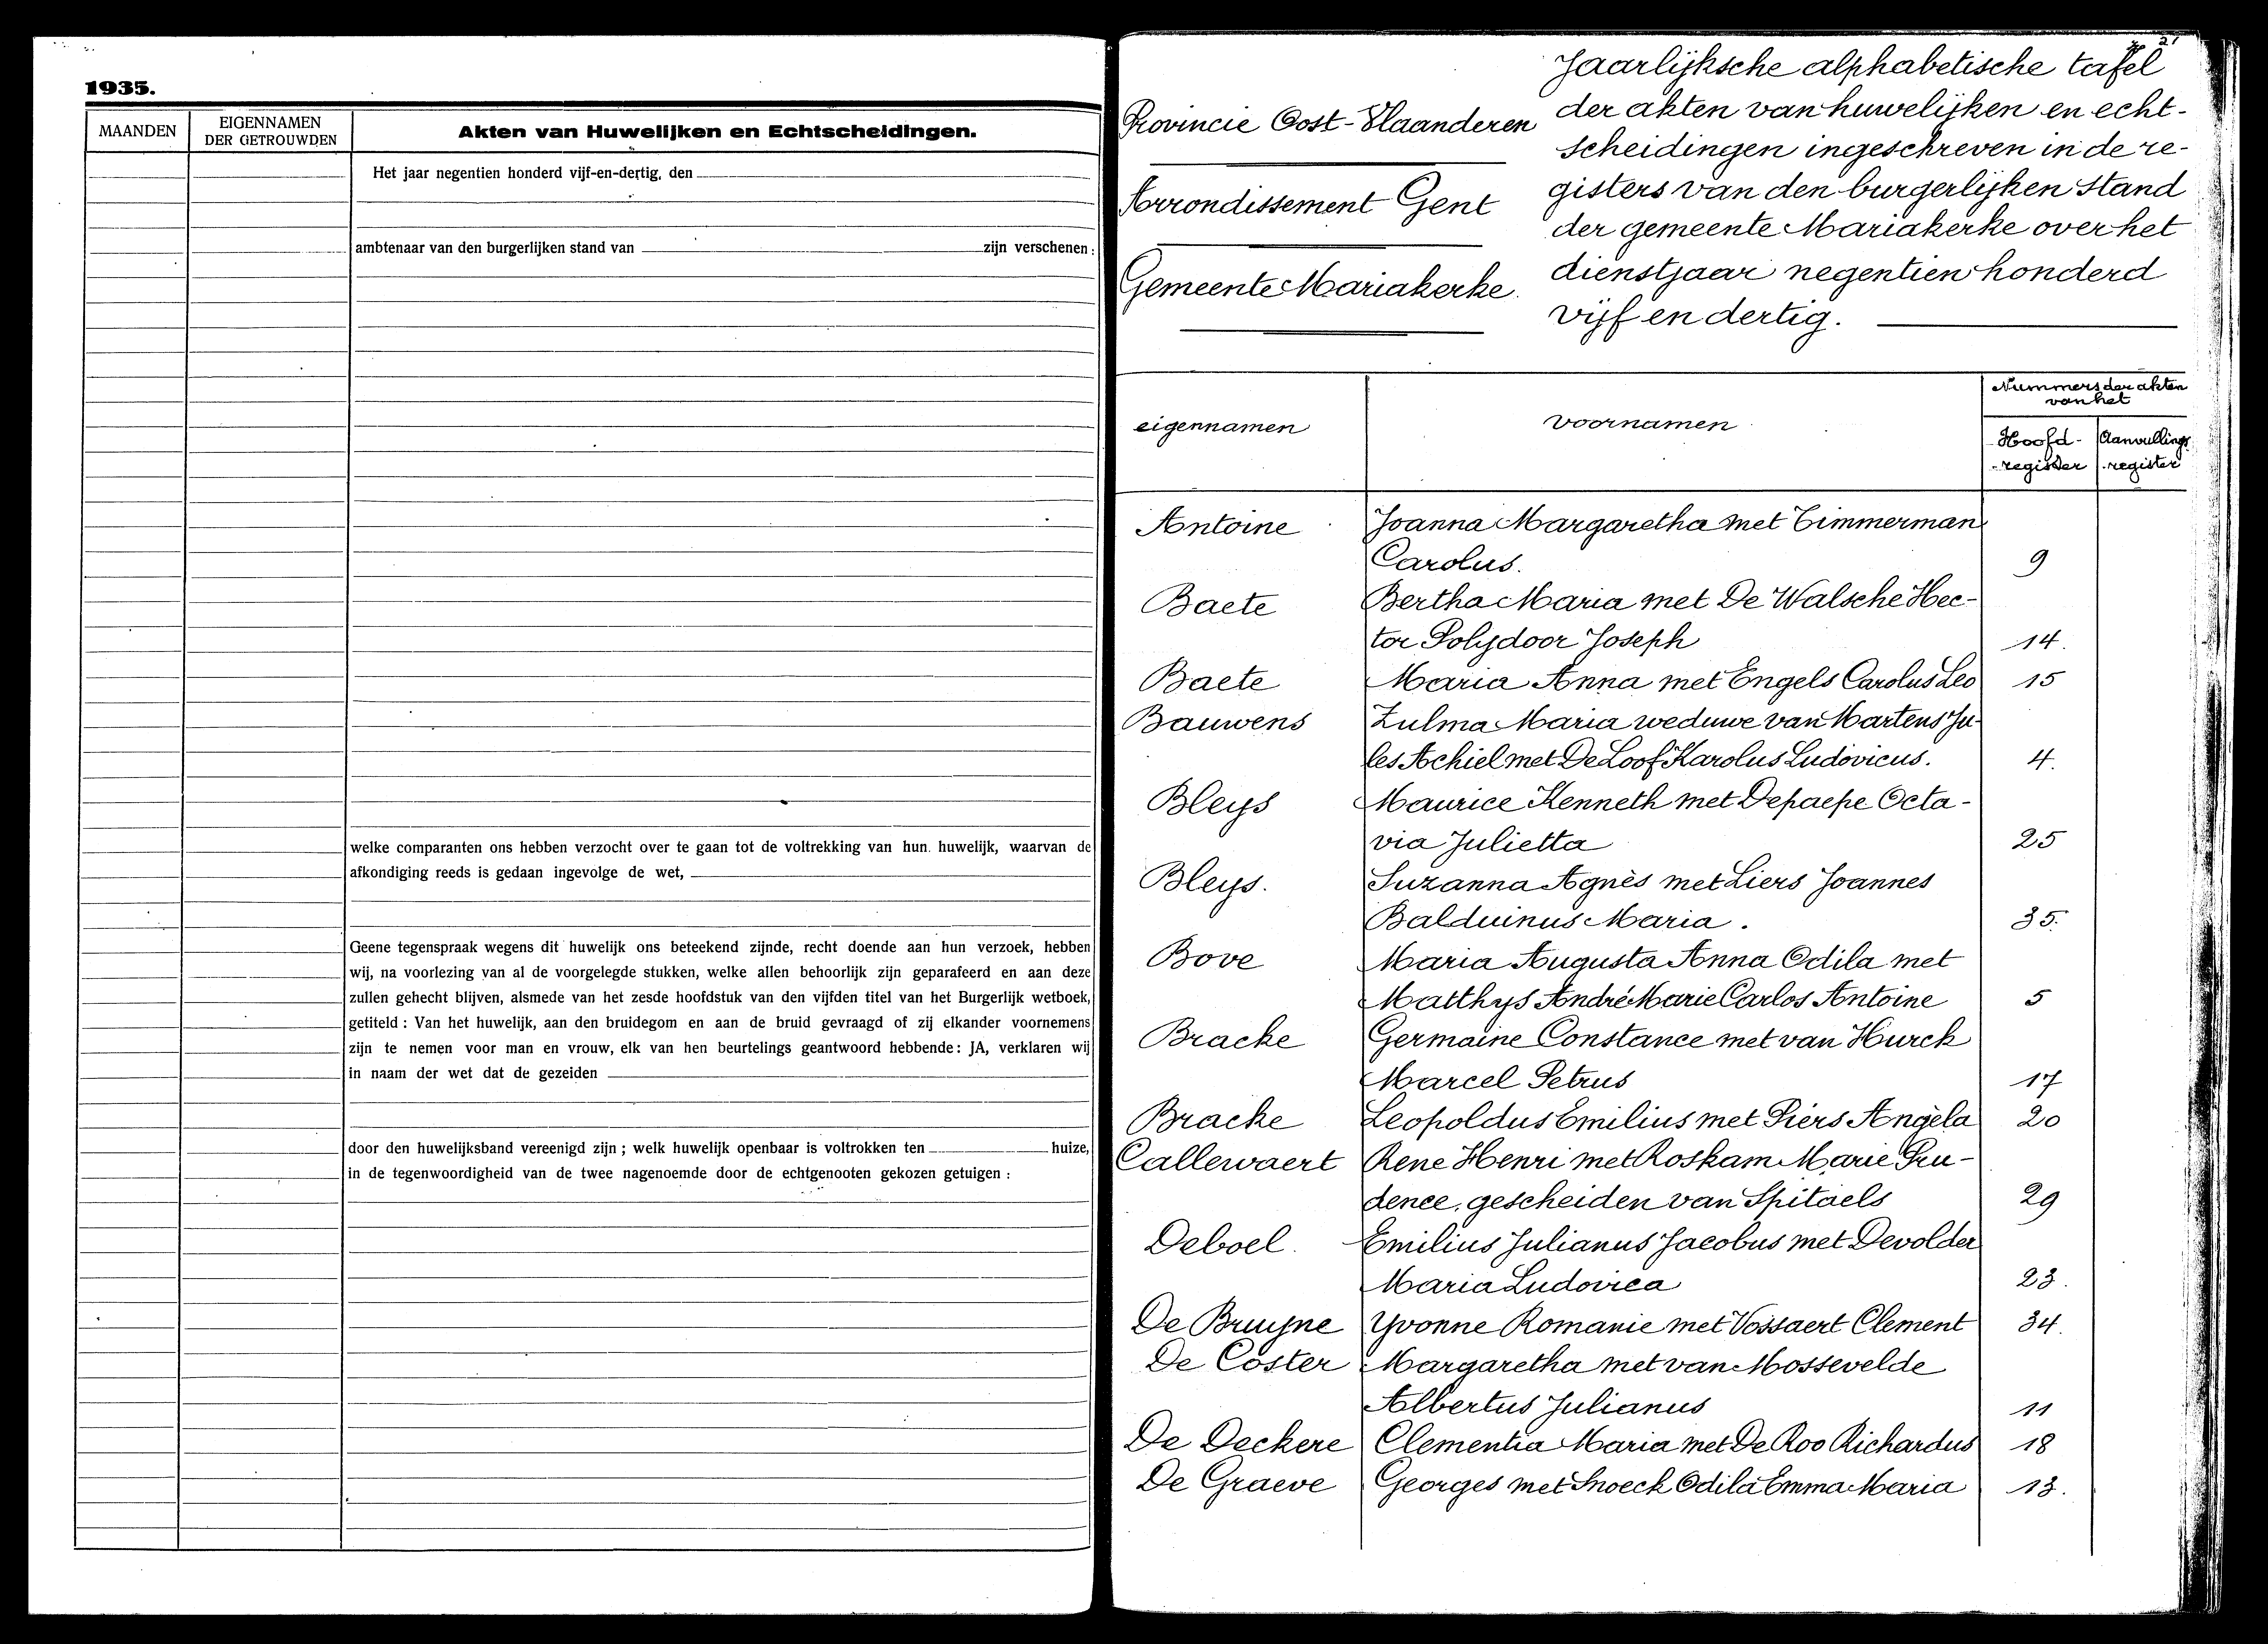 1935.
MAANDEN
EIGENNAMEN
DER GETROUWDEN
Akten van Huwelijken en Echtscheidingen.
Het jaar negentien honderd vijf-en-dertig, den
ambtenaar van den burgerlijken stand van zijn verschenen :
welke comparanten ons hebben verzocht over te gaan tot de voltrekking van hun huwelijk, waarvan de
afkondiging reeds is gedaan ingevolge de wet,
Geene tegenspraak wegens dit huwelijk ons beteekend zijnde, recht doende aan hun verzoek, hebben
wij, na voorlezing van al de voorgelegde stukken, welke allen behoorlijk zijn geparafeerd en aan deze
zullen gehecht blijven, alsmede van het zesde hoofdstuk van den vijfden titel van het Burgerlijk wetboek,
getiteld : Van het huwelijk, aan den bruidegom en aan de bruid gevraagd of zij elkander voornemens
zijn te nemen voor man en vrouw, elk van hen beurtelings geantwoord hebbende : JA, verklaren wij
in naam der wet dat de gezeiden
door den huwelijksband vereenigd zijn ; welk huwelijk openbaar is voltrokken ten huize,
in de tegenwoordigheid van de twee nagenoemde door de echtgenooten gekozen getuigen :
Provincie Oost-Vlaanderen
Arrondissement Gent
Gemeente Mariakerke.
Jaarlijksche alphabetische tafel
der akten van huwelijken en echt-
scheidingen ingeschreven in de re-
gisters van den burgerlijken stand
der gemeente Mariakerke over het
dienstjaar negentien honderd
vijf en dertig.
eigennamen voornamen
Nummers der akten
van het
Hoofd- Aanvullings
-register -register
Antoine Joanna Margaretha met Timmerman
Carolus. 9
Baete Bertha Maria met De Walsche Hec-
tor Polydoor Joseph 14.
Baete Maria Anna met Engels Carolus Leo 15
Bauwens Zulma Maria weduwe van Martens Ju-
les Achiel met De Loof Karolus Ludovicus. 4.
Bleys Maurice Kenneth met Depaepe Octa-
via Julietta 25
Bleys. Suzanna Agnès met Liers Joannes
Balduinus Maria. 35.
Bove Maria Augusta Anna Odila met
Matthys André Marie Carlos Antoine 5
Bracke Germaine Constance met van Hurck
Marcel Petrus 17
Bracke Leopoldus Emilius met Piers Angèla 20
Callewaert Rene Henri met Roskam Marie Pru-
dence, gescheiden van Spitaels 29
Deboel. Emilius Julianus Jacobus met Devolder
Maria Ludovica 23.
De Bruyne Yvonne Romanie met Vossaert Clement 34.
De Coster Margaretha met van Mossevelde
Albertus Julianus 11
De Deckere Clementia Maria met De Roo Richardus 18
De Graeve Georges met Snoeck Odila Emma Maria 13.